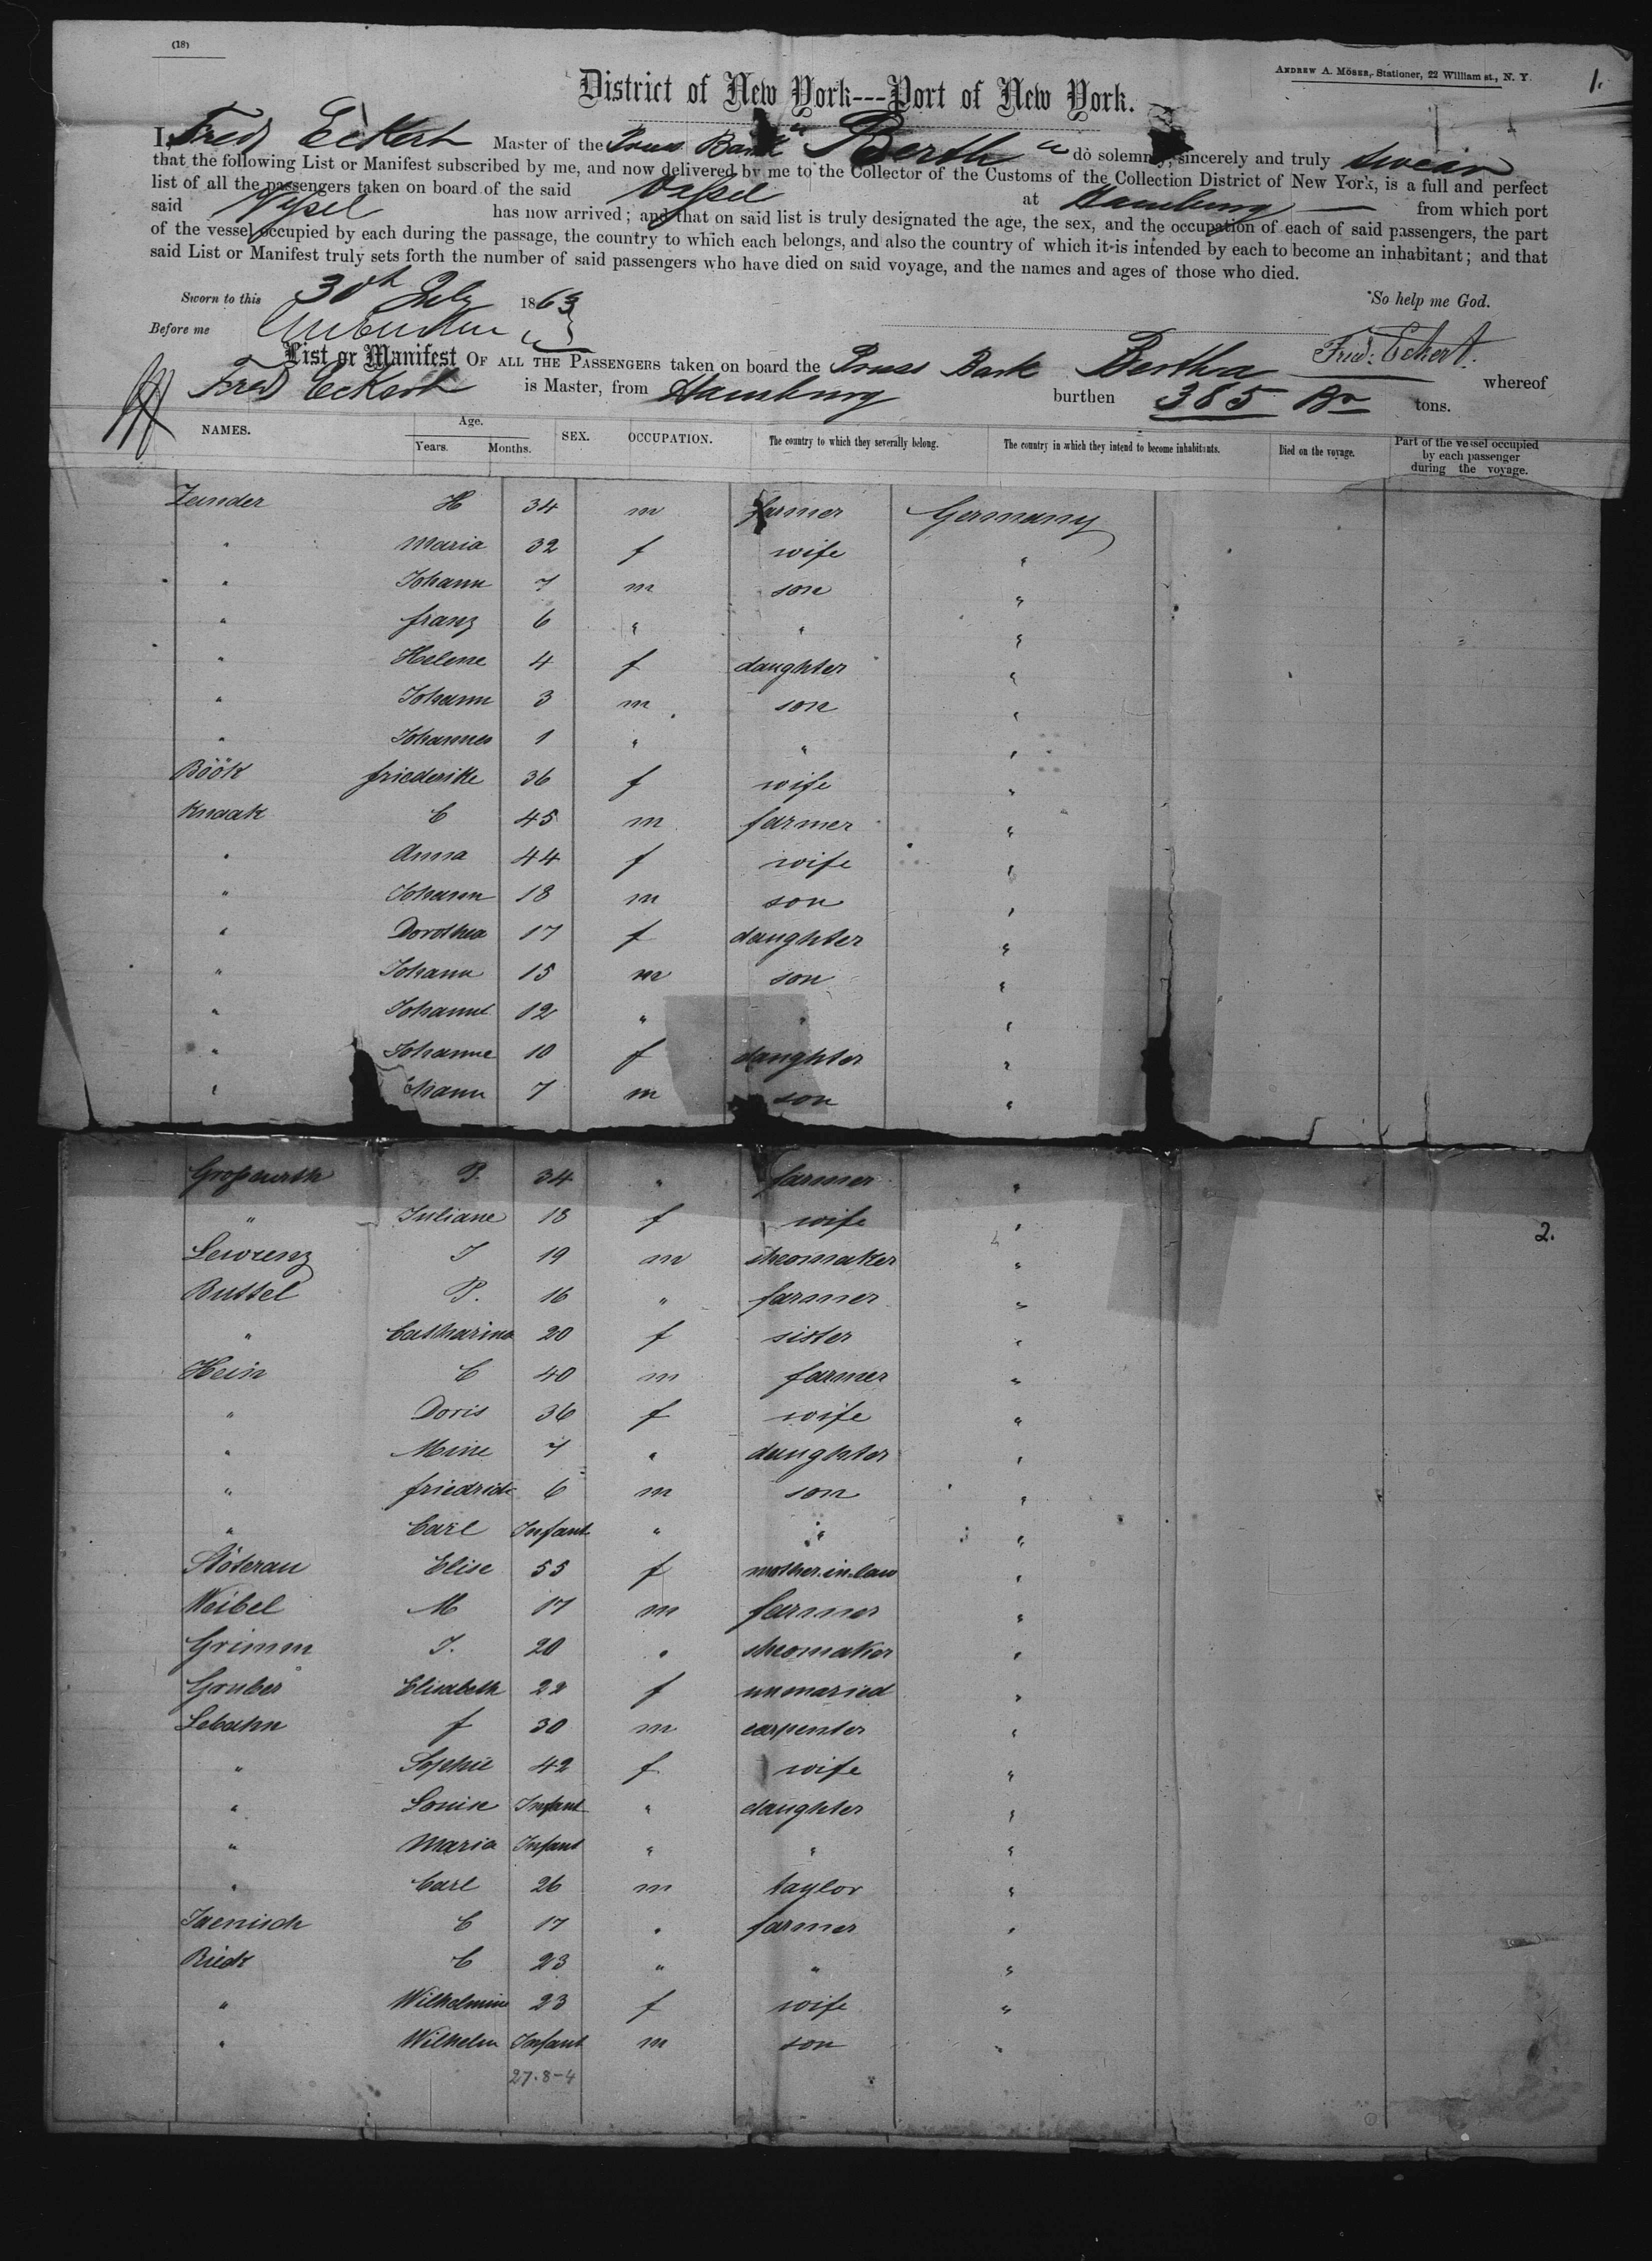 (18)
ANDREW A. MÖSER, Stationer, 22 William st., N. Y.
1.
District of New York---Port of New York.
I, Fred Eckert Master of the Pruss Bark "Berth " do solemnly, sincerely and truly swear
that the following List or Manifest subscribed by me, and now delivered by me to the Collector of the Customs of the Collection District of New York, is a full and perfect
list of all the passengers taken on board of the said Vessel at Hamburg from which port
said Vessel has now arrived; and that on said list is truly designated the age, the sex, and the occupation of each of said passengers, the part
of the vessel occupied by each during the passage, the country to which each belongs, and also the country of which it is intended by each to become an inhabitant; and that
said List or Manifest truly sets forth the number of said passengers who have died on said voyage, and the names and ages of those who died.
Sworn to this 30th July 1863
So help me God.
Before me
Fred. Eckert.
List or Manifest OF ALL THE PASSENGERS taken on board the Pruss Bark Bertha whereof
Fred Eckert is Master, from Hamburg burthen 385 tons.
NAMES. Age. Years. Months. SEX. OCCUPATION. The country to which they severally belong. The country in which they intend to become inhabitants. Died on the voyage. Part of the vessel occupied by each passenger during the voyage.
Zander H 34 m farmer Germany
" Maria 32 f wife "
" Johann 7 m son "
" franz 6 " " "
" Helene 4 f daughter "
" Johann 3 m son "
" Johannes 1 " " "
Böök friederike 36 f wife "
Knaak C 45 m farmer "
" Anna 44 f wife "
" Johann 18 m son "
" Dorothea 17 f daughter "
" Johann 15 m son "
" Johann 12 " " "
" Johanne 10 f daughter "
" ohann 7 m son "
Grospurth P. 34 " farmer "
" Juliane 18 f wife "
2.
Lewrenz J 19 m sheomaker "
Buttel P. 16 " farmer "
" Catharina 20 f sister "
Hein C 40 m farmer "
" Doris 36 f wife "
" Mine 7 " daughter "
" friedrich 6 m son "
" Carl Infant " " "
Stöterau Elise 55 f mother-in-law "
Weibel M 17 m farmer "
Grimm J. 20 " sheomaker "
Gruber Elisabeth 22 f unmaried "
Lebahn f 30 m carpenter "
" Sophie 42 f wife "
" Louise Infant " daughter "
" Maria Infant " " "
" Carl 26 m taylor "
Jaenisch C 17 " farmer "
Riedt C 23 " " "
" Wilhelmine 23 f wife "
" Wilhelm Infant m son "
27-8-4